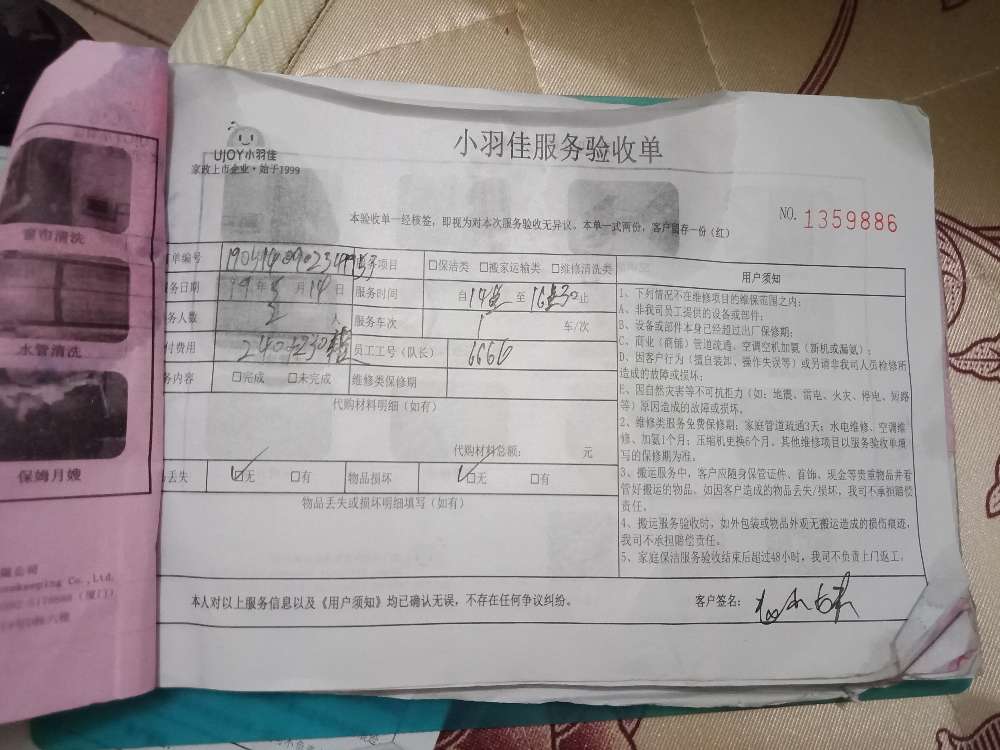 窗帘清洗
水管清洗
保姆月嫂
限公司
sekeeping Co.,Ltd.
UJOY小羽佳
家政上市企业·始于1999
小羽佳服务验收单
本验收单一经核签，即视为对本次服务验收无异议。本单一式两份，客户留存一份（红）
NO. 1359886
单编号
服务项目 □保洁类 □搬家运输类 □维修清洗类
务日期 19年 月14日 服务时间 自14 至16 30止
务人数 人 服务车次 车/次
付费用 员工工号（队长） 6666
务内容 □完成 □未完成 维修类保修期
代购材料明细（如有）
代购材料总额： 元
丢失 □无 □有 物品损坏 □无 □有
物品丢失或损坏明细填写（如有）
用户须知
1、下列情况不在维修项目的维保范围之内：
A、非我司员工提供的设备或部件；
B、设备或部件本身已经超过出厂保修期；
C、商业（商铺）管道疏通、空调空机加氨（新机或漏氨）；
D、因客户行为（擅自装卸、操作失误等）或另请非我司人员检修所
造成的故障或损坏；
E、因自然灾害等不可抗拒力（如：地震、雷电、火灾、停电、短路
等）原因造成的故障或损坏。
2、维修类服务免费保修期：家庭管道疏通3天；水电维修、空调维
修、加氨1个月；压缩机更换6个月。其他维修项目以服务验收单填
写的保修期为准。
3、搬运服务中，客户应随身保管证件、首饰、现金等贵重物品并看
管好搬运的物品。如因客户造成的物品丢失/损坏，我司不承担赔偿
责任。
4、搬运服务验收时，如外包装或物品外观无搬运造成的损伤痕迹，
我司不承担赔偿责任。
5、家庭保洁服务验收结束后超过48小时，我司不负责上门返工。
本人对以上服务信息以及《用户须知》均已确认无误，不存在任何争议纠纷。
客户签名：